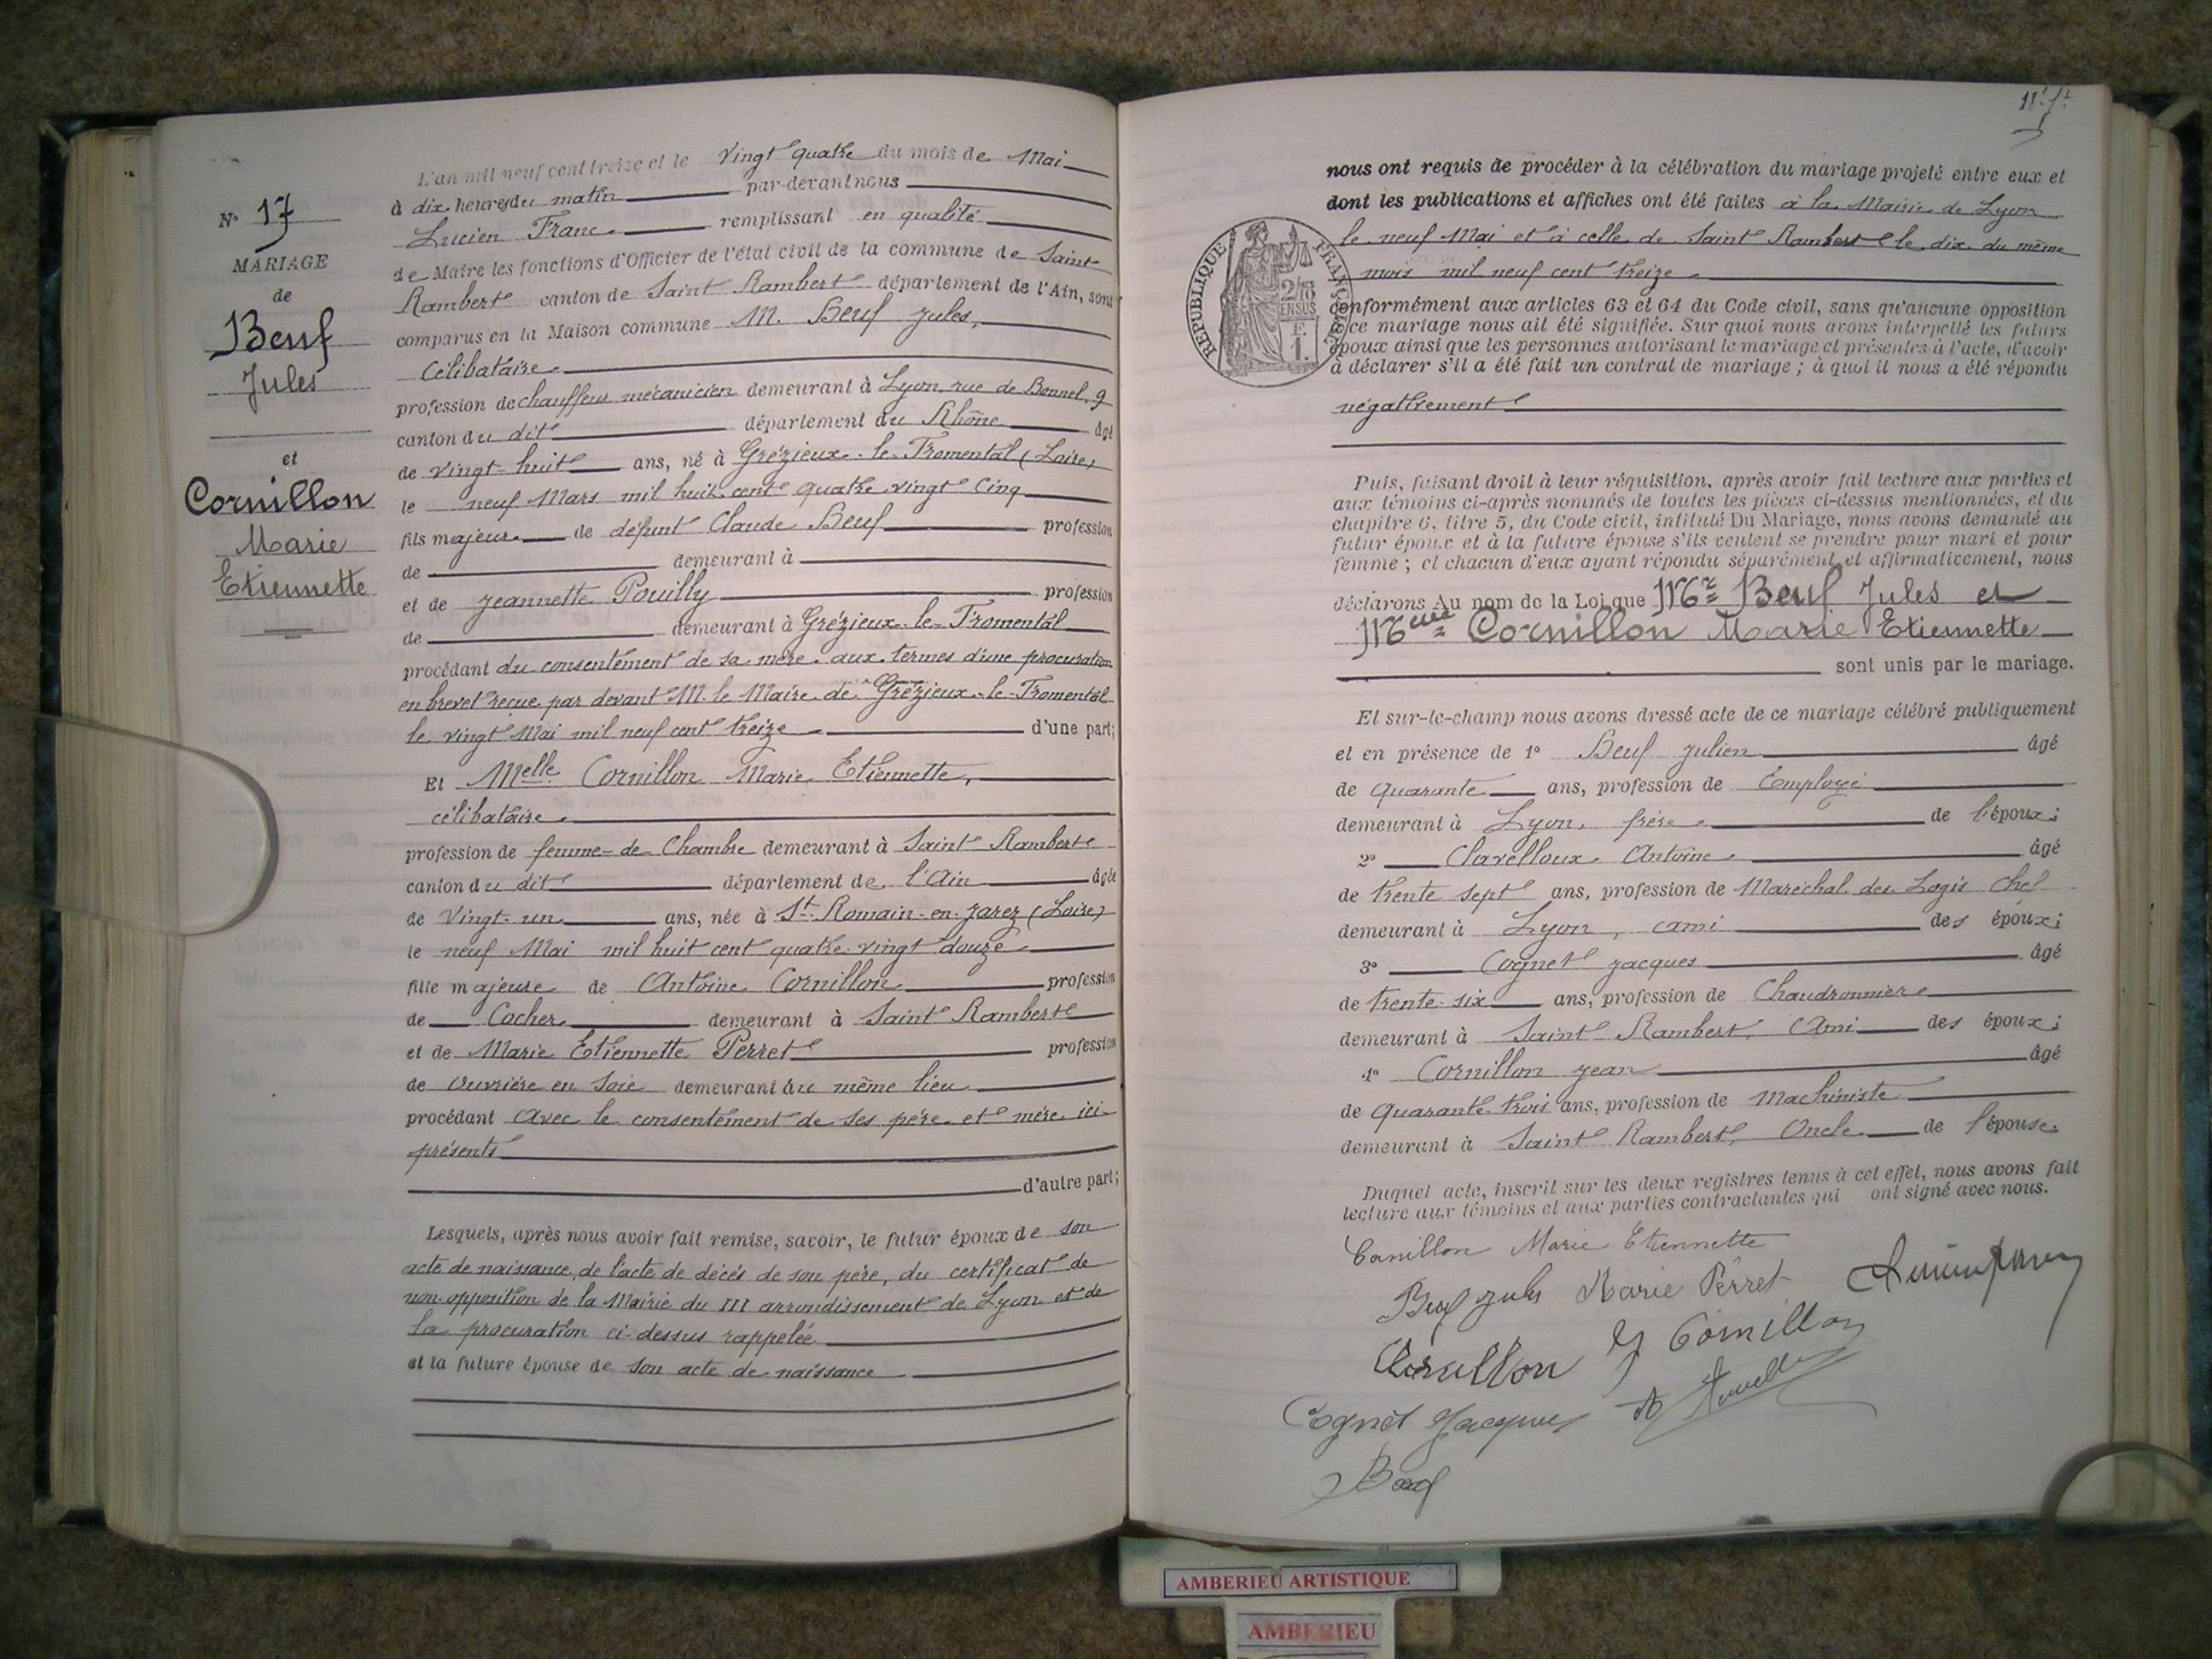 N° 17
MARIAGE
de
Beuf
Jules
et
Cornillon
Marie
Etiennette
L'an mil neuf cent treize et le vingt quatre du mois de Mai
à dix heures du matin par-devant nous
Lucien Franc remplissant en qualité
de Maire les fonctions d'Officier de l'état civil de la commune de Saint
Rambert canton de Saint Rambert département de l'Ain, sont
comparus en la Maison commune M. Beuf Jules,
célibataire
profession de chauffeur mécanicien demeurant à Lyon rue de Bonnel, 9
canton du dit département du Rhône âgé
de vingt-huit ans, né à Grézieux-le-Fromental (Loire)
le neuf Mars mil huit cent quatre vingt cinq
fils majeur de défunt Claude Beuf profession
de demeurant à
et de Jeannette Pouilly profession
de demeurant à Grézieux-le-Fromental
procédant du consentement de sa mère aux termes d'une procuration
en brevet reçue par devant M. le Maire de Grézieux-le-Fromental
le vingt Mai mil neuf cent treize d'une part;
Et Melle Cornillon Marie Etiennette,
célibataire
profession de femme-de-Chambre demeurant à Saint Rambert
canton du dit département de l'Ain âgée
de Vingt-un ans, née à St Romain-en-Jarez (Loire)
le neuf Mai mil huit cent quatre-vingt douze
fille majeure de Antoine Cornillon profession
de Cocher demeurant à Saint Rambert
et de Marie Etiennette Perret profession
de Ouvrière en Soie demeurant au même lieu
procédant avec le consentement de ses père et mère ici
présents
d'autre part;
Lesquels, après nous avoir fait remise, savoir, le futur époux de son
acte de naissance, de l'acte de décès de son père, du certificat de
non-opposition de la Mairie du III arrondissement de Lyon et de
la procuration ci-dessus rappelée
et la future épouse de son acte de naissance
nous ont requis de procéder à la célébration du mariage projeté entre eux et
dont les publications et affiches ont été faites à la Mairie de Lyon
le neuf Mai et à celle de Saint Rambert le dix du même
mois mil neuf cent treize
REPUBLIQUE FRANÇAISE
2/10 EN SUS
F. 1.
conformément aux articles 63 et 64 du Code civil, sans qu'aucune opposition
à ce mariage nous ait été signifiée. Sur quoi nous avons interpellé les futurs
époux ainsi que les personnes autorisant le mariage et présentes à l'acte, d'avoir
à déclarer s'il a été fait un contrat de mariage ; à quoi il nous a été répondu
négativement
Puis, faisant droit à leur réquisition, après avoir fait lecture aux parties et
aux témoins ci-après nommés de toutes les pièces ci-dessus mentionnées, et du
chapitre 6, titre 5, du Code civil, intitulé Du Mariage, nous avons demandé au
futur époux et à la future épouse s'ils veulent se prendre pour mari et pour
femme ; et chacun d'eux ayant répondu séparément et affirmativement, nous
déclarons Au nom de la Loi que Mr Beuf Jules et
Melle Cornillon Marie Etiennette
sont unis par le mariage.
Et sur-le-champ nous avons dressé acte de ce mariage célébré publiquement
et en présence de 1° Beuf Julien âgé
de quarante ans, profession de Employé
demeurant à Lyon, frère de l'époux;
2° Clavelloux Antoine âgé
de trente sept ans, profession de Maréchal des Logis Chef
demeurant à Lyon, ami des époux;
3° Cognet Jacques âgé
de trente-six ans, profession de Chaudronnier
demeurant à Saint Rambert, Ami des époux;
4° Cornillon Jean âgé
de quarante-trois ans, profession de Machiniste
demeurant à Saint Rambert, Oncle de l'épouse.
Duquel acte, inscrit sur les deux registres tenus à cet effet, nous avons fait
lecture aux témoins et aux parties contractantes qui ont signé avec nous.
Cornillon Marie Etiennette
Beuf Jules Marie Perret
Cornillon Cornillon
Cognet Jacques
Beuf
AMBERIEU ARTISTIQUE
AMBERIEU